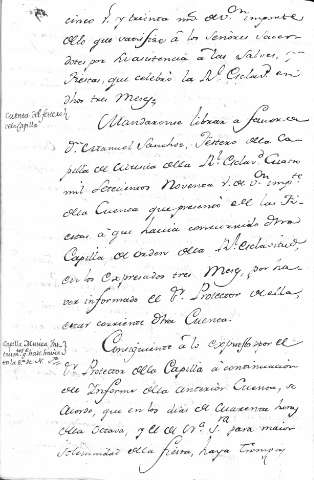 cinco r.s y treinta mrs de V.on importe
de lo que satisfizo à los Señores Sacer-
dotes por la asistencia à las Salves, y
Fiestas, que celebró la R.l Esclav.d en
dhos tres Meses.
Cuenta del
de la Capilla
Mandaronse librar à favor de
D.n Manuel Sanchez, Testero de la Ca-
pilla de Musica de la R.l Esclav.d Quatro
mil Setecientos Noventa r.s de V.on imp.te
de la Cuenta que presentó de las Fi-
estas à que havia concurrido dha
Capilla de orden de la R.l Esclavitud,
en los expresados tres Meses, por ha-
ver informado el S.r Protector de ella,
estar corriente dha Cuenta.
Capilla Musica
Consiguiente à lo expresado por el
S.r Protector de la Capilla à continuación
del Informe de la anterior Cuenta, se
Acordó, que en los dias de Quarenta horas
de la Octava, y el de N.ra S.ra para maior
solemnidad de la fiesta, haya